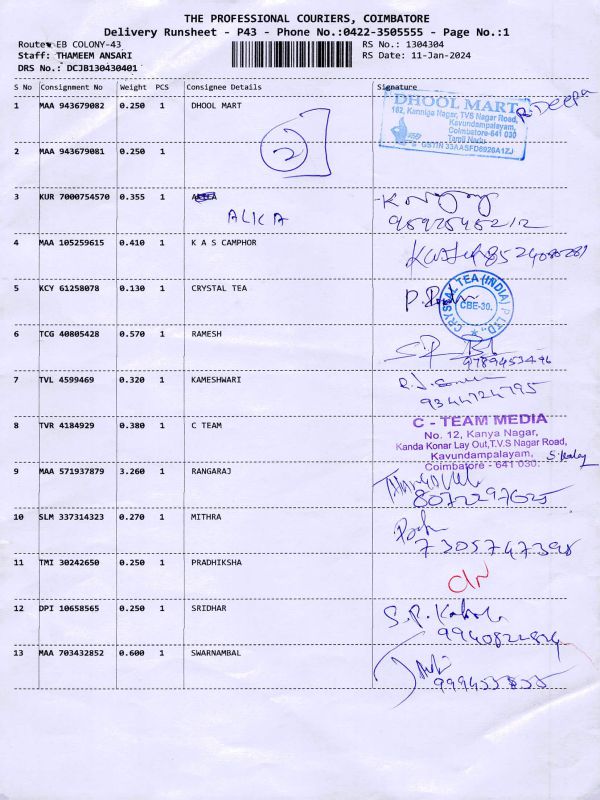 THE PROFESSIONAL COURIERS, COIMBATORE
Delivery Runsheet - P43 - Phone No.:0422-3505555 - Page No.:1
Route: EB COLONY-43
RS No.: 1304304
Staff: THAMEEM ANSARI
RS Date: 11-Jan-2024
DRS No.: DCJB130430401
S No Consignment No Weight PCS Consignee Details Signature
1 MAA 943679082 0.250 1 DHOOL MART
DHOOL MART
162, Kanniga Nagar, TVS Nagar Road,
Kavundampalayam,
Coimbatore-641 030
Tamil Nadu
GSTIN 33AASFD8920A1ZJ
R. Deepa
2 MAA 943679081 0.250 1
2
3 KUR 7000754570 0.355 1
ALICA
4 MAA 105259615 0.410 1 K A S CAMPHOR
5 KCY 61258078 0.130 1 CRYSTAL TEA
CRYSTAL TEA (INDIA) P LTD.,
CBE-30.
6 TCG 40805428 0.570 1 RAMESH
7 TVL 4599469 0.320 1 KAMESHWARI
9344724795
8 TVR 4184929 0.380 1 C TEAM
C - TEAM MEDIA
No. 12, Kanya Nagar,
Kanda Konar Lay Out,T.V.S Nagar Road,
Kavundampalayam,
Coimbatore - 641 030.
9 MAA 571937879 3.260 1 RANGARAJ
8072297625
10 SLM 337314323 0.270 1 MITHRA
7305747398
11 TMI 30242650 0.250 1 PRADHIKSHA
12 DPI 10658565 0.250 1 SRIDHAR
13 MAA 703432852 0.600 1 SWARNAMBAL